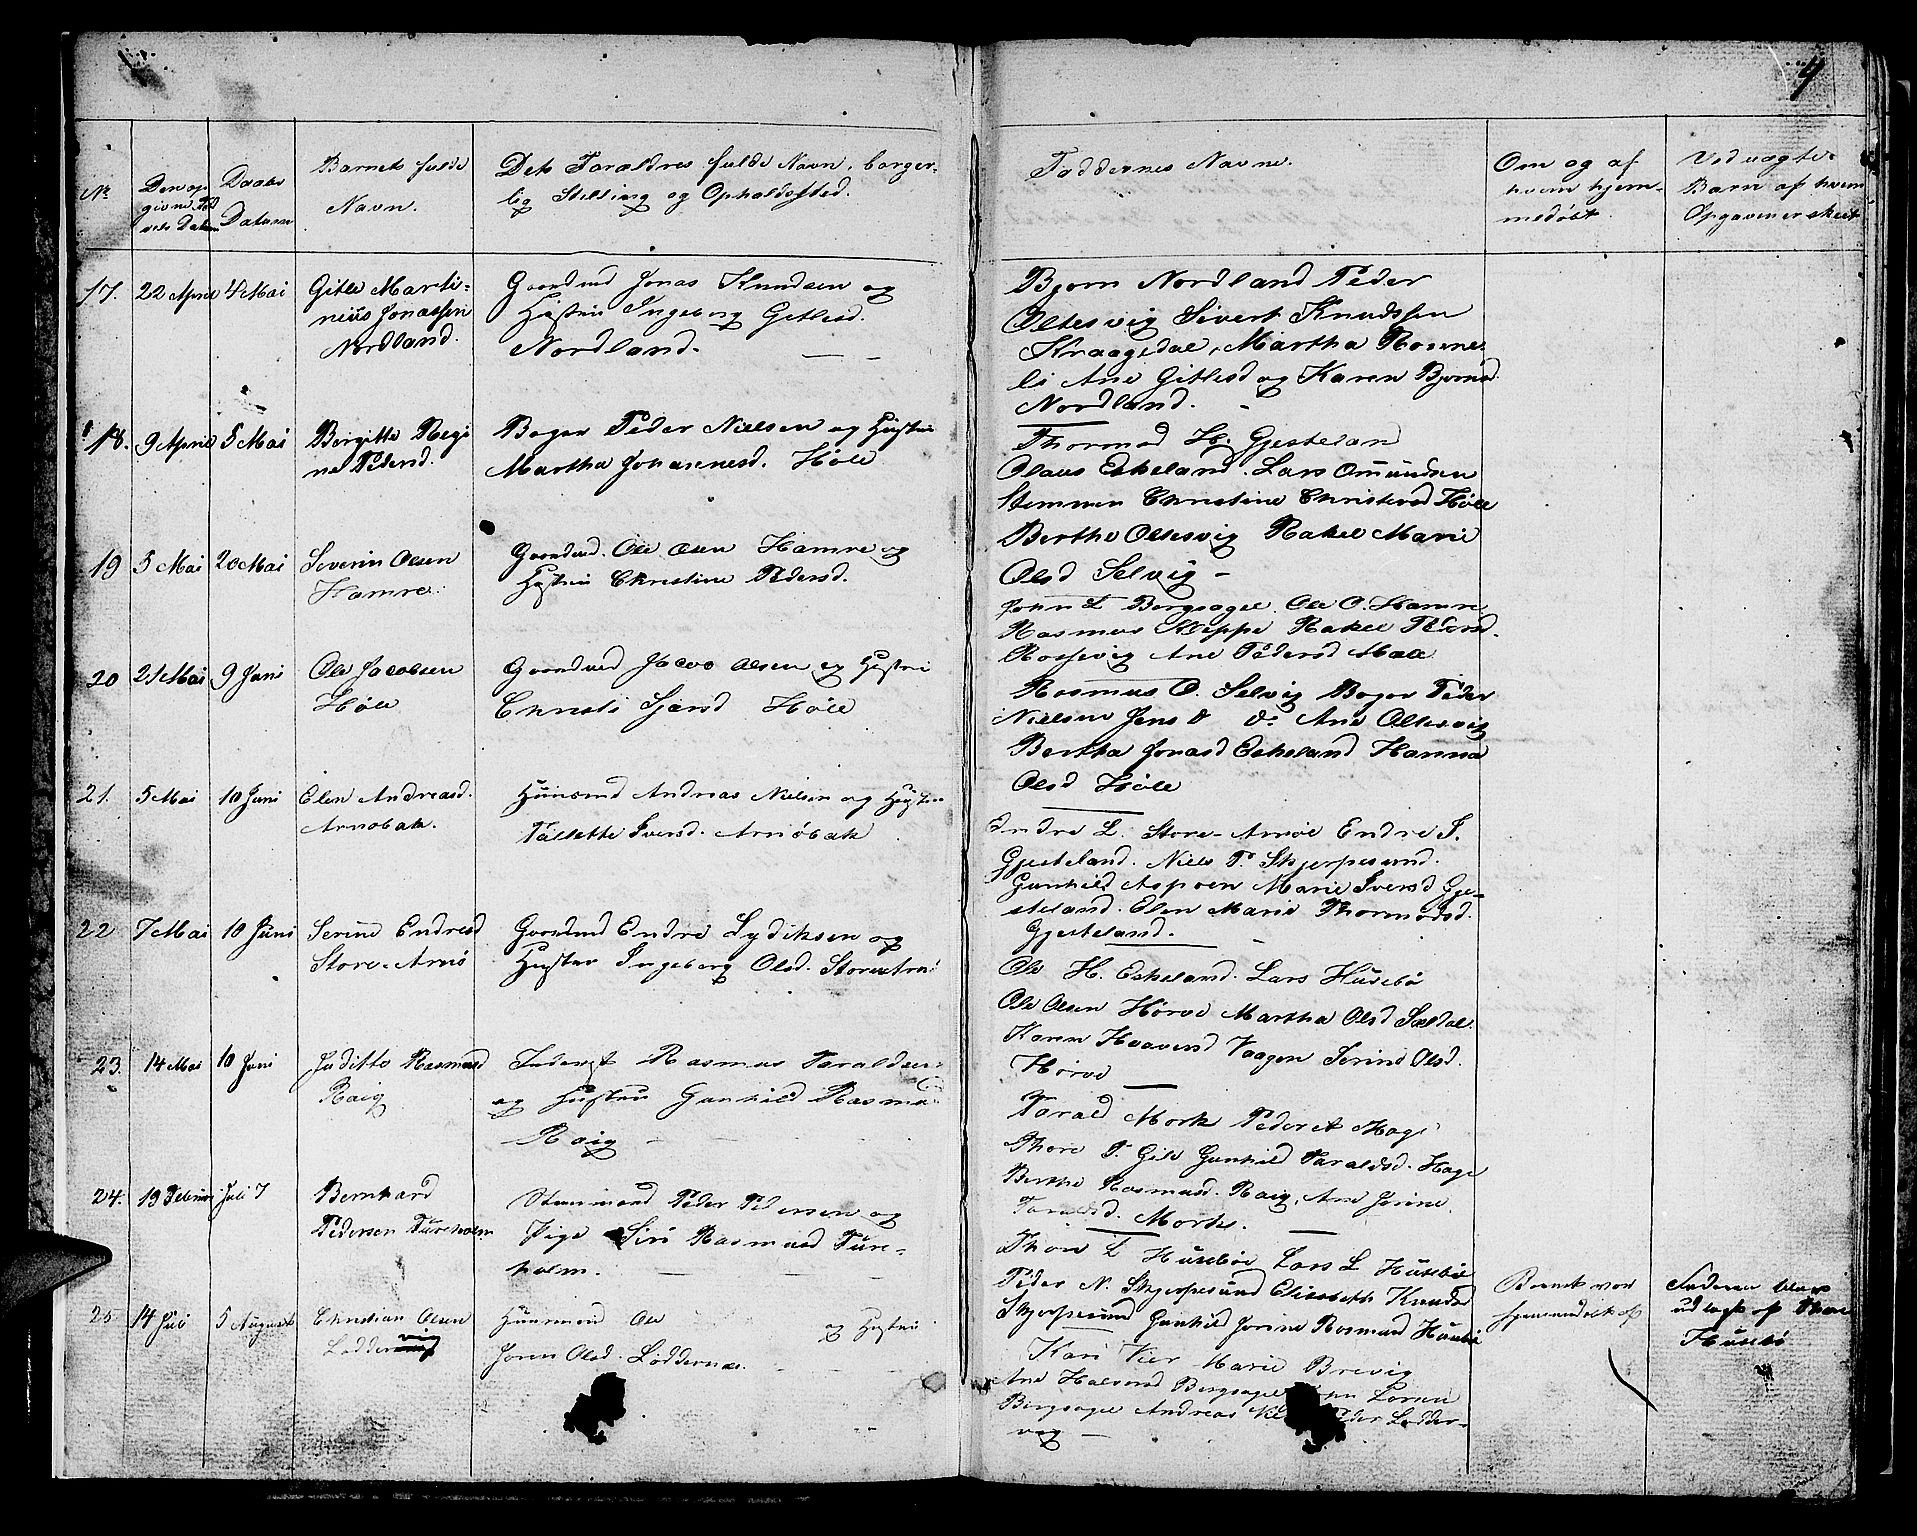 4
No
Den op
givne Fød
sels Datum
Daabs
Datum
Barnets fulde
Navn.
Dets Foraldres fulde Navn, borger-
lig Stilling og Opholdssted.
Faddernes Navne.
Om og af
hvem hjem-
medøbt
Ved uægte
Barn af hvem
Opgaven er skeet
17. 22 April 4 Mai
Gitle Marti-
nius Jonassen
Nordland.
Gaardmd Jonas Knudsen og
Hustru Ingeborg Gitlesd.
Nordland.
Bjorn Nordland Peder
Oltesvig Sivert Knudssen
Kraagedal, Martha Rosene-
li Ane Gitlesd og Karen Bjornsd.
Nordland.
18. 9 April 5 Mai
Birgitte Regi
ne Pedersd.
Peder Nielsen og Hustru
Martha Johannesd. Høle
Thormod H. Gjestelan
Olaus Eskeland. Lars Omundsen
Christine Christensd Høle
Berthe Oltesvig Rakel Marie
Olsd Selvig
19 5 Mai 20 Mai
Severin Olsen
Hamre.
Gaardmd. Ole Olsen Hamre og
Hustru Christine Pedersd.
John L Bergsagel. Ole O. Hamre
Rasmus Kleppe Rakel Pedersd.
Rossevig Ane Pedersd Hæle
20 21 Mai 9 Juni
Ole Jacobsen
Høle
Gaardmd Jacob Olsen og Hustru
Christi Sjursd Høle
Rasmus O. Selvig Peder
Nielsen Jens Ane Oltesvig
Bertha Jonasd Eskeland Hanna
Olsd Høle
21. 5 Mai 10 Juni
Elen Andreasd.
Arnøbak.
Huusmd Andreas Nielsen og Hustru
Tallette Iversd. Arnøbak
Endre L. Store-Arnøe Endre I.
Gjesteland. Niels P. Skjerpesund.
Gunhild Aspøen Marie Iversd Gje-
steland. Elen Marie Thormodsd.
Gjesteland.
22 7 Mai 10 Juni
Serine Endresd
Store-Arnø
Gaardmd Endre Lydiksen og
Hustru Ingeborg Olsd. Store Arnø
Ole H. Eskeland. Lars Husebø
Ole Olsen Hørve Martha Olsd Sældal.
Karen Haaversd Vaagen Serine Olsd.
Hørve
23. 14 Mai 10 Juni
Juditte Rasmusd
Raig
Inderst Rasmus Taraldsen
og Hustru Gunhild Rasmusd
Raig
Tarald Mork Peder Hage
Thore T. Gile Gunhild Taraldsd. Hage
Berthe Rasmusd. Raig, Ane Jorine
Taraldsd. Mork.
24. 19 Februar Juli 7
Bernhard
Pedersen Tureholm
Peder Pedersen og
Pige Siri Rasmusd Ture-
holm.
Thore L Husebøe Lars L Husebø
Peder N. Skjerpesund Elisabeth Knudsd
Skjerpesund Gunhild Jorine Rasmusd Husebø
Barnet var
hjemmedøbt af
Faderen blev
udlagt af Thore
Husebø
25. 14 Juli 5 August
Christian Olsen
Lodder
Huusmand Ole og Hustru
Joren Olsd. Loddernæs.
Kari Vier Marie Brevig
Ane Halversd Bergsagel
Bergsagel Andreas Peder Lodder-
vag